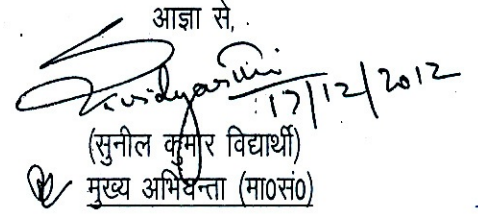 आज्ञा से,
17/12/2012
(सुनील कुमार विद्यार्थी)
मुख्य अभियन्ता (मा0सं0)